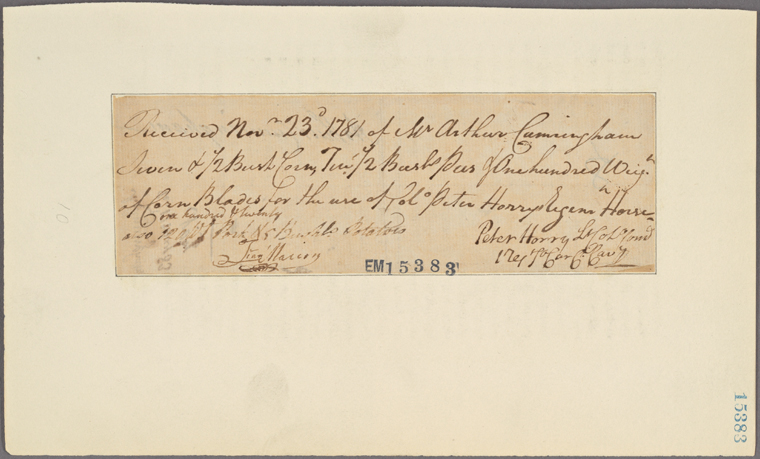 Received Novr. 23d. 1781 of Mr Arthur Cunningham
Seven & 1/2 Bush Corn, Two 1/2 Bushs Peas & One hundred Wieg.t
of Corn Blades for the use of Colo Peter Horrys Regemn Horse
one hundred & twenty
also 120 lb Pork & 8 Bushls Potatoes
Peter Horry Lt Col Comd
Fran Marion
1 Reg So Car Ca Cavy
EM15383
10
15383